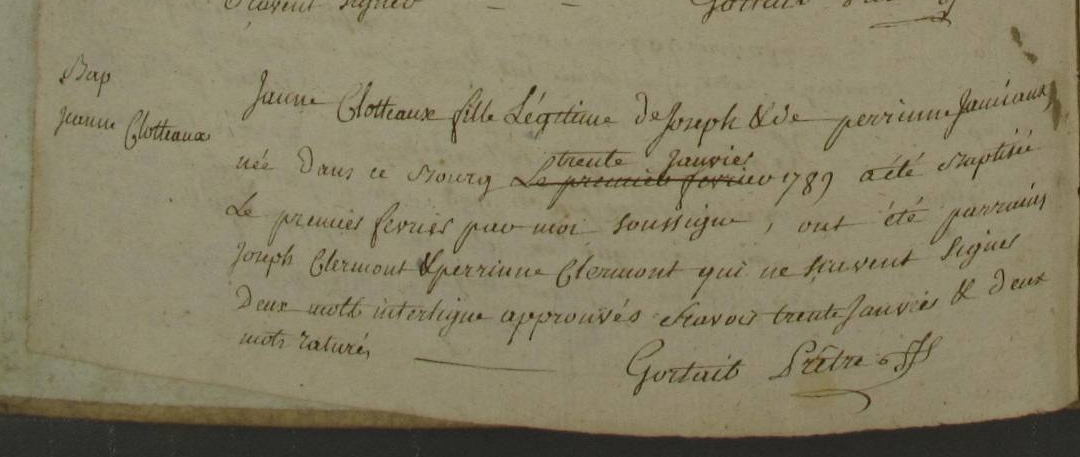 sçavent signer - - Gortait
Bap
jeanne Clotteaux
Jeanne Clotteaux fille Légitime de Joseph & de perrinne Jamiaux,
née dans ce Bourg Le premier fevrier trente Janvier 1789 a été Baptisée
Le premier fevrier par moi soussigne, ont été parrains
Joseph Clermont & perrinne Clermont qui ne sçavent signer
Deux mots interligne approuvés sçavoir trente Janvier & deux
mots raturés
Gortait Prêtre